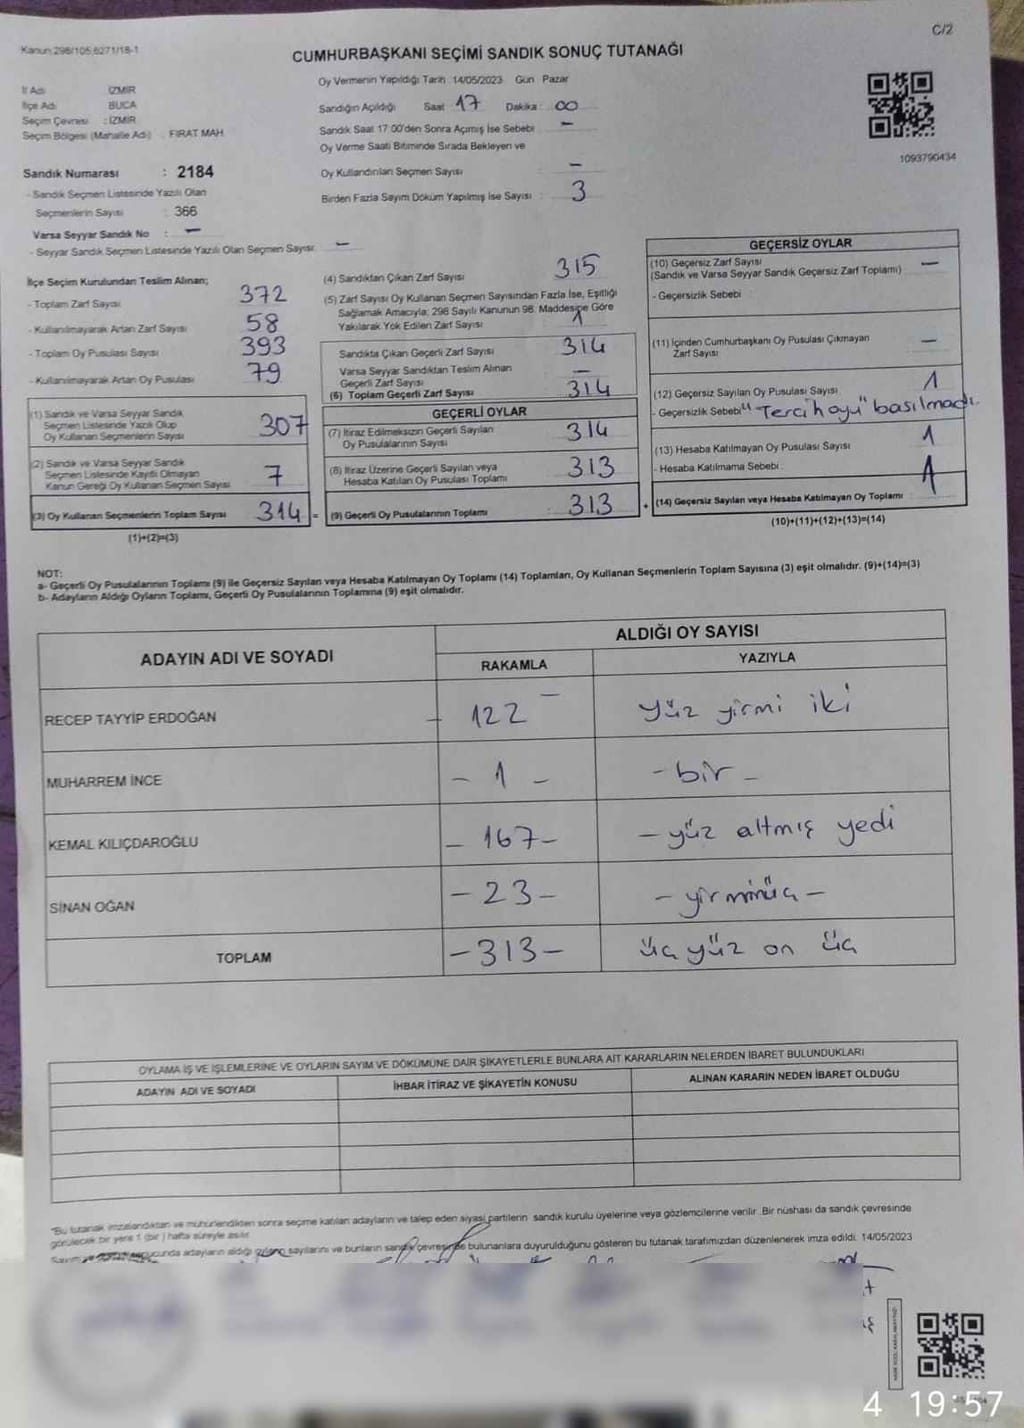 C/2
Kanun:298/105,6271/18-1
CUMHURBAŞKANI SEÇİMİ SANDIK SONUÇ TUTANAĞI
İl Adı : İZMİR
İlçe Adı : BUCA
Seçim Çevresi : İZMİR
Seçim Bölgesi (Mahalle Adı) : FIRAT MAH
Oy Vermenin Yapıldığı Tarih 14/05/2023 Gün Pazar
Sandığın Açıldığı Saat 17 Dakika : 00
Sandık Saat 17:00'den Sonra Açılmış İse Sebebi : -
Oy Verme Saati Bitiminde Sırada Bekleyen ve
Oy Kullandırılan Seçmen Sayısı : -
Birden Fazla Sayım Döküm Yapılmış İse Sayısı : 3
1093790434
Sandık Numarası : 2184
- Sandık Seçmen Listesinde Yazılı Olan
Seçmenlerin Sayısı : 366
Varsa Seyyar Sandık No : -
- Seyyar Sandık Seçmen Listesinde Yazılı Olan Seçmen Sayısı: -
İlçe Seçim Kurulundan Teslim Alınan;
- Toplam Zarf Sayısı 372
- Kullanılmayarak Artan Zarf Sayısı 58
- Toplam Oy Pusulası Sayısı 393
- Kullanılmayarak Artan Oy Pusulası 79
(1) Sandık ve Varsa Seyyar Sandık
Seçmen Listesinde Yazılı Olup
Oy Kullanan Seçmenlerin Sayısı 307
(2) Sandık ve Varsa Seyyar Sandık
Seçmen Listesinde Kayıtlı Olmayan
Kanun Gereği Oy Kullanan Seçmen Sayısı 7
(3) Oy Kullanan Seçmenlerin Toplam Sayısı 314 =
(1)+(2)=(3)
(4) Sandıktan Çıkan Zarf Sayısı 315
(5) Zarf Sayısı Oy Kullanan Seçmen Sayısından Fazla İse, Eşitliği
Sağlamak Amacıyla; 298 Sayılı Kanunun 98. Maddesine Göre
Yakılarak Yok Edilen Zarf Sayısı 1
Sandıkta Çıkan Geçerli Zarf Sayısı 314
Varsa Seyyar Sandıktan Teslim Alınan
Geçerli Zarf Sayısı -
(6) Toplam Geçerli Zarf Sayısı 314
GEÇERLİ OYLAR
(7) İtiraz Edilmeksizin Geçerli Sayılan
Oy Pusulalarının Sayısı 314
(8) İtiraz Üzerine Geçerli Sayılan veya
Hesaba Katılan Oy Pusulası Toplamı 313
(9) Geçerli Oy Pusulalarının Toplamı 313 +
GEÇERSİZ OYLAR
(10) Geçersiz Zarf Sayısı
(Sandık ve Varsa Seyyar Sandık Geçersiz Zarf Toplamı) -
- Geçersizlik Sebebi :
(11) İçinden Cumhurbaşkanı Oy Pusulası Çıkmayan
Zarf Sayısı -
(12) Geçersiz Sayılan Oy Pusulası Sayısı 1
- Geçersizlik Sebebi "Tercih oyu" basılmadı.
(13) Hesaba Katılmayan Oy Pusulası Sayısı 1
- Hesaba Katılmama Sebebi :
(14) Geçersiz Sayılan veya Hesaba Katılmayan Oy Toplamı : 1
(10)+(11)+(12)+(13)=(14)
NOT:
a- Geçerli Oy Pusulalarının Toplamı (9) ile Geçersiz Sayılan veya Hesaba Katılmayan Oy Toplamı (14) Toplamları, Oy Kullanan Seçmenlerin Toplam Sayısına (3) eşit olmalıdır. (9)+(14)=(3)
b- Adayların Aldığı Oyların Toplamı, Geçerli Oy Pusulalarının Toplamına (9) eşit olmalıdır.
ADAYIN ADI VE SOYADI
ALDIĞI OY SAYISI
RAKAMLA YAZIYLA
RECEP TAYYİP ERDOĞAN - 122 - yüz yirmi iki
MUHARREM İNCE - 1 - - bir -
KEMAL KILIÇDAROĞLU - 167 - - yüz altmış yedi
SİNAN OĞAN - 23 - - yirmiüç -
TOPLAM - 313 - üç yüz on üç
OYLAMA İŞ VE İŞLEMLERİNE VE OYLARIN SAYIM VE DÖKÜMÜNE DAİR ŞİKAYETLERLE BUNLARA AİT KARARLARIN NELERDEN İBARET BULUNDUKLARI
ADAYIN ADI VE SOYADI İHBAR İTİRAZ VE ŞİKAYETİN KONUSU ALINAN KARARIN NEDEN İBARET OLDUĞU
"Bu tutanak imzalandıktan ve mühürlendikten sonra seçime katılan adayların ve talep eden siyasi partilerin sandık kurulu üyelerine veya gözlemcilerine verilir. Bir nüshası da sandık çevresinde
görülecek bir yere 1 (bir) hafta süreyle asılır.
Sayım sonucunda adayların aldığı oyların sayılarını ve bunların sandık çevresinde bulunanlara duyurulduğunu gösteren bu tutanak tarafımızdan düzenlenerek imza edildi. 14/05/2023
4 19:57